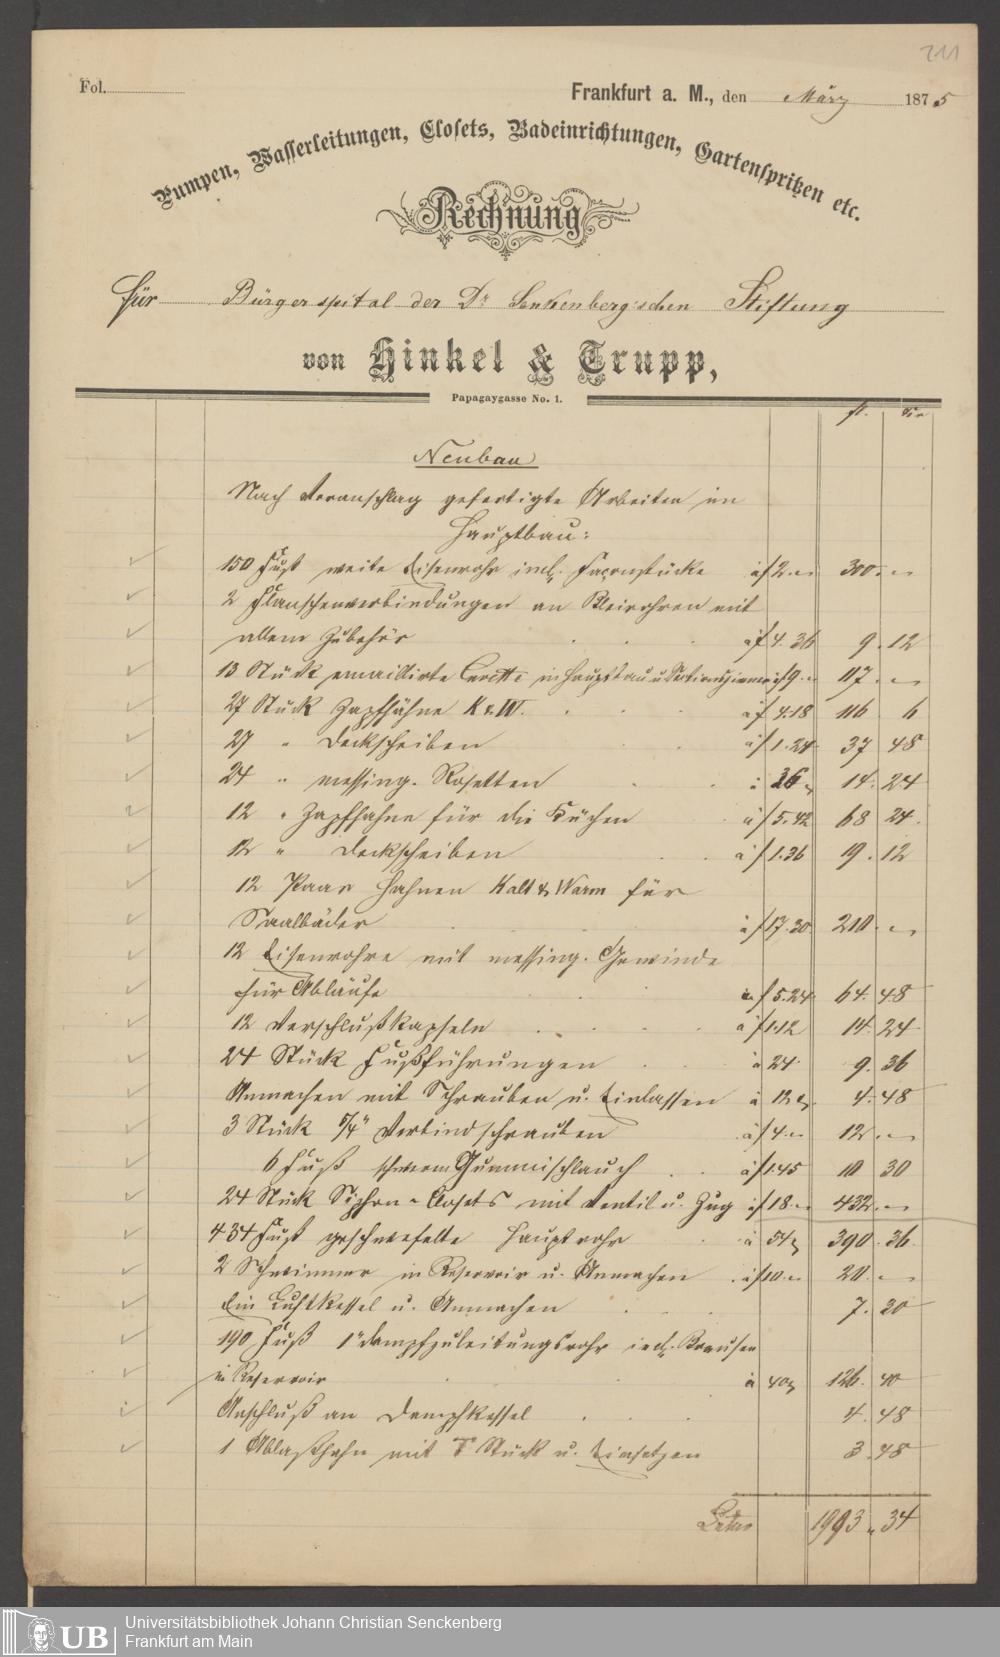 211
Fol.
Frankfurt a. M., den März 1875
Pumpen, Wasserleitungen, Closets, Badeinrichtungen, Gartenspritzen etc.
Rechnung
für Bürgerspital der Dr Senkenberg'schen Stiftung
von Hinkel & Trupp,
Papagaygasse No. 1.
fl. Kr
Neubau
Nach Voranschlag gefertigte Arbeiten im
Hauptbau:
150 Fuß weite Eisenrohr incl. Façonstücke à f 2.– 300.–
2 Flanschenverbindungen an Bleirohren mit
allem Zubehör à f 4.36 9.12
13 Stück emaillirte in Hauptbau u. Sectionszimmer à f 9.– 117.–
27 Stück Zapfhähne K & W. à f 4.18 116 6
27 " Deckscheiben à f 1.24 37 48
24 " messing. Rosetten à 36 14.24
12 " Zapfhahne für die Küchen à f 5.42 68 24
12 " Deckscheiben à f 1.36 19.12
12 Paar Hahnen Kalt & Warm für
Saalbäder à f 17.30 210.–
12 Eisenrohre mit messing. Gewinde
für Abläufe à f 5.24 64.48
12 Verschlußkapseln à f 1.12 14.24
24 Stück Fußführungen à 24 9.36
Anmachen mit Schrauben u. Einlassen à 12 4.48
3 Stück 5/4" Verbindschrauben à f 4.– 12.–
6 Fuß schwerem Gummischlauch à f 1.45 10 30
24 Stück Syphon-Closets mit Ventil u. Zug à f 18.– 432.–
434 Fuß geschwefelte Hauptrohr à 54 390.36
2 Schwimmer in Reservoir u. Anmachen à f 10.– 20.–
Ein Luftkessel u. Anmachen 7.20
190 Fuß 1" Dampfzuleitungsrohr incl. Brausen
in Reservoir à 40 126.40
Anschluß an Dampfkessel 4.48
1 Ablaßhahn mit T Stück u. Einsetzen 3.48
Latus 1993.34
UB Universitätsbibliothek Johann Christian Senckenberg
Frankfurt am Main